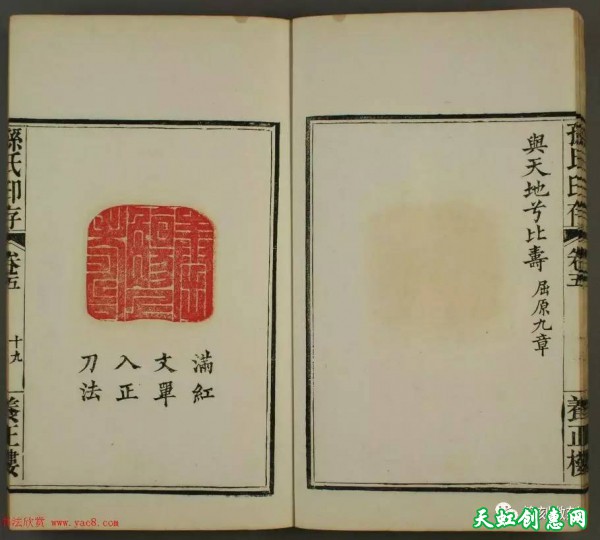 與天地兮比壽 屈原九章
孫氏印存
卷五
養正樓
滿紅
文單
入正
刀法
孫氏印存
卷五
十九
養正樓
书法欣赏 www.yac8.com
天虹创意网